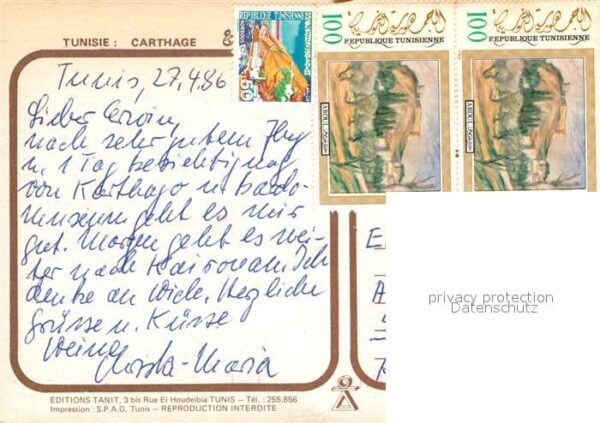 TUNISIE : CARTHAGE &
Tunis, 27.4.86
Lieber Erwin,
nach sehr gutem Flug
u. 1 Tag besichtigung
von Karthago u. Bardo-
museum geht es mir
gut. Morgen geht es wei-
ter nach Kairouan. Ich
denke an Dich. Herzliche
Grüsse u. Küsse
Deine
Christa-Maria
EDITIONS TANIT, 3 bis Rue El Houdeibia TUNIS – Tél. : 255.856
Impression : S.P.A.G. Tunis – REPRODUCTION INTERDITE
REPUBLIQUE TUNISIENNE
100
الجمهورية التونسية
REPUBLIQUE TUNISIENNE
ABDUL
100
الجمهورية التونسية
REPUBLIQUE TUNISIENNE
ABDUL
E
privacy protection
Datenschutz